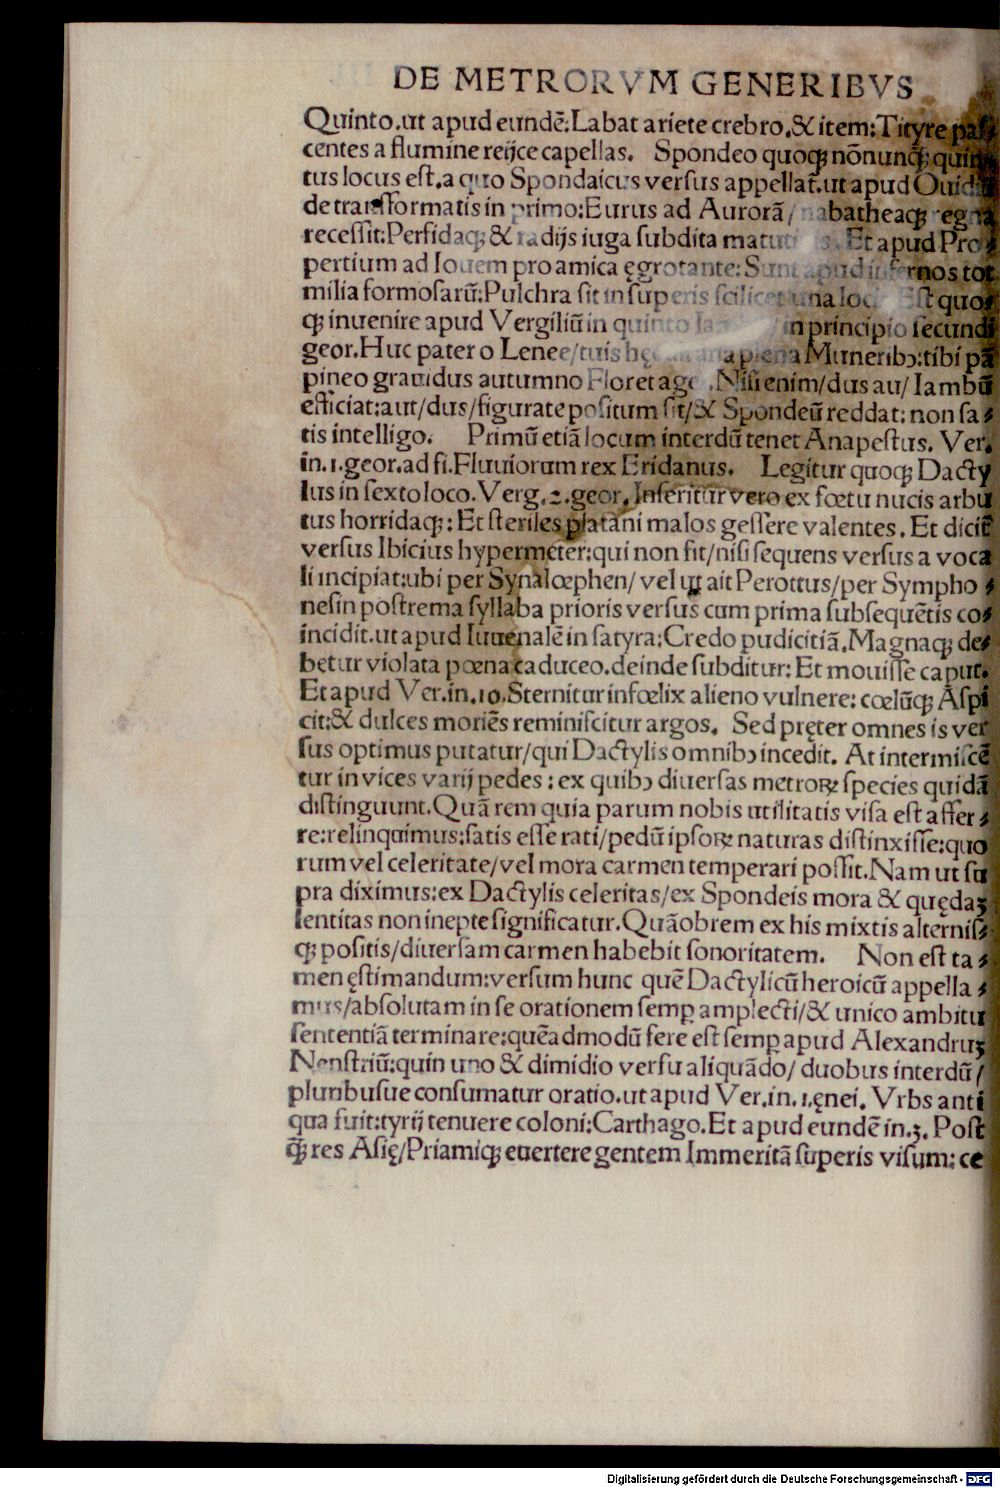 DE METRORVM GENERIBVS
Quinto.ut apud eundē:Labat ariete crebro.& item:Tityre pas⸗
centes a flumine reijce capellas. Spondeo quoqꝫ nōnunq̄ꝫ quin
tus locus est.a quo Spondaicus versus appellat̄.ut apud Ouidiū
de transformatis in primo:Eurus ad Aurorā/ nabatheaqꝫ regna
recessit:Persidaqꝫ & radijs iuga subdita matutinis. Et apud Pro⸗
pertium ad Iouem pro amica ęgrotante:Sunt apud infernos tot
milia formosarū:Pulchra sit in superis scilicet una locis Est quo⸗
qꝫ inuenire apud Vergiliū in quinto in principio secundi
geor.Huc pater o Lenee/tuis hęc plena Muneribꝫ:tibi pā
pineo grauidus autumno Floret ager.Nisi enim/dus au/ Iambū
efficiat:aut/dus/figurate positum sit/& Spondeū reddat: non sa⸗
tis intelligo. Primū etiā locum interdū tenet Anapestus. Ver.
in.1.geor.ad fi.Fluuiorum rex Eridanus. Legitur quoqꝫ Dacty
lus in sexto loco.Verg.2.geor.Inseritur vero ex fœtu nucis arbu
tus horridaqꝫ: Et steriles platani malos gessere valentes. Et dicit̄
versus Ibicius hypermeter:qui non fit/nisi sequens versus a voca
li incipiat:ubi per Synalœphen/ vel ut ait Perottus/per Sympho⸗
nesin postrema syllaba prioris versus cum prima subsequētis co⸗
incidit.ut apud Iuuenalē in satyra:Credo pudicitiā.Magnaqꝫ de⸗
betur violata pœna caduceo.deinde subditur: Et mouisse caput.
Et apud Ver.in.10.Sternitur infœlix alieno vulnere: cœlūqꝫ Aspi
cit:& dulces moriēs reminiscitur argos. Sed pręter omnes is ver
sus optimus putatur/qui Dactylis omnibꝫ incedit. At intermiscē
tur in vices varij pedes : ex quibꝫ diuersas metroꝝ species quidā
distinguunt.Quā rem quia parum nobis utilitatis visa est affer⸗
re:relinquimus:satis esse rati/pedū ipsoꝝ naturas distinxisse:quo
rum vel celeritate/vel mora carmen temperari possit.Nam ut su
pra diximus:ex Dactylis celeritas/ex Spondeis mora & quędaꝫ
lentitas non inepte significatur.Quāobrem ex his mixtis alternis⸗
qꝫ positis/diuersam carmen habebit sonoritatem. Non est ta⸗
men ęstimandum:versum hunc quē Dactylicū heroicū appella⸗
mus/absolutam in se orationem semꝑ amplecti/& unico ambitu
sententiā terminare:quēadmodū fere est semꝑ apud Alexandruꝫ
Nonstriū:quin uno & dimidio versu aliquādo/ duobus interdū/
pluribusue consumatur oratio.ut apud Ver.in.1.ęnei. Vrbs anti
qua fuit:tyrij tenuere coloni:Carthago.Et apud eundē in.3. Post
q̄ꝫ res Asię/Priamiqꝫ euertere gentem Immeritā superis visum: ce
Digitalisierung gefördert durch die Deutsche Forschungsgemeinschaft - DFG